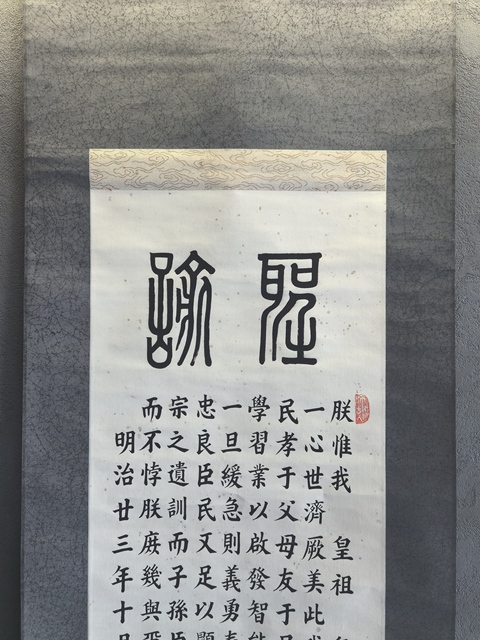 聖諭
朕惟我 皇祖
一心世濟厥美此
民孝于父母友于
學習業以啟發智能
一旦緩急則義勇奉
忠良臣民又足以顯
宗之遺訓而子孫臣
而不悖朕庶幾與爾
明治廿三年十月